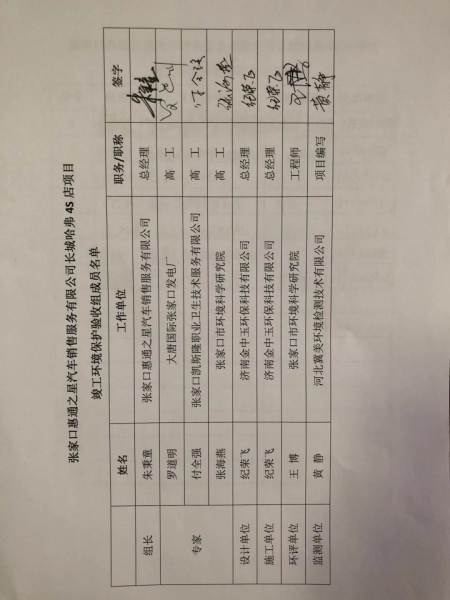 张家口惠通之星汽车销售服务有限公司长城哈弗 4S 店项目
竣工环境保护验收组成员名单
姓名 工作单位 职务/职称 签字
组长 朱秉童 张家口惠通之星汽车销售服务有限公司 总经理
专家 罗道明 大唐国际张家口发电厂 高 工
付全强 张家口凯斯隆职业卫生技术服务有限公司 高 工 付全强
张海燕 张家口市环境科学研究院 高 工 张海燕
设计单位 纪荣飞 济南金中玉环保科技有限公司 总经理 纪荣飞
施工单位 纪荣飞 济南金中玉环保科技有限公司 总经理 纪荣飞
环评单位 王 博 张家口市环境科学研究院 工程师
监测单位 黄 静 河北冀美环境检测技术有限公司 项目编写 黄静